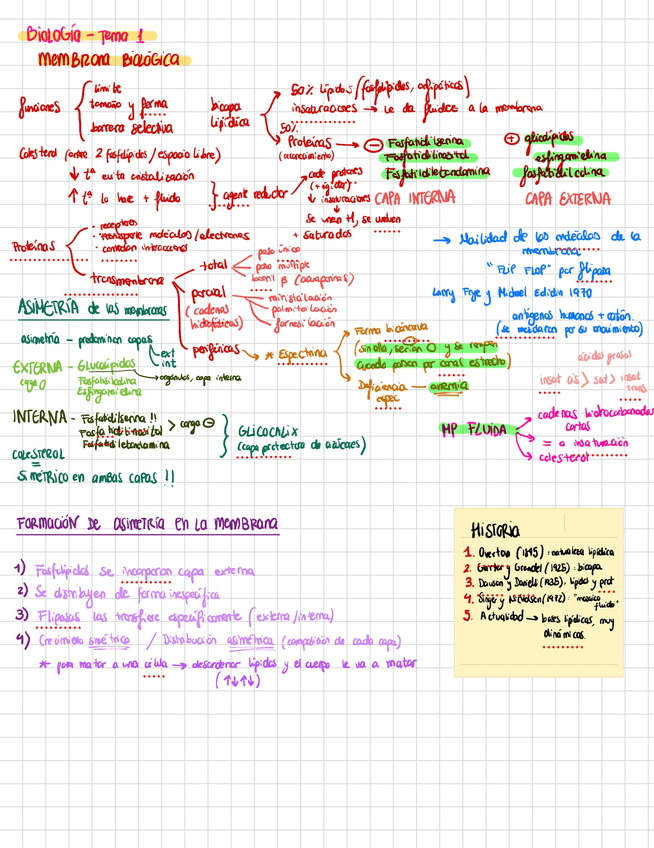 Biología - Tema 1
MEMBRANA BIOLÓGICA
funciones
límite
tamaño y forma
barrera selectiva
bicapa lipídica
50% lípidos (fosfolípidos, anfipáticos)
insaturaciones → le da fluidez a la membrana
50%
Proteínas →
(reconocimiento)
⊖ Fosfatidilserina
Fosfatidilinositol
Fosfatidiletanolamina
CAPA INTERNA
⊕ glicolípidos
esfingomielina
fosfatidilcolina
CAPA EXTERNA
Colesterol (entre 2 fosfolípidos / espacio libre)
↓ tª evita cristalización
↑ tª lo hace + fluido
agente reductor
cede protones
(+ rígidez)
↓ insaturaciones
se unen H, se vuelven
+ saturados
Proteínas
· receptores
· transporte moléculas / electrones
· conexión intracelular
transmembrana
total
paso único
paso múltiple
barril β (acuaporinas)
parcial
(cadenas hidrofóbicas)
miristoilación
palmitoilación
farnesilación
periféricas → * Espectrina
Forma bicóncava
(sin ella, serían O y se rompen
cuando pasan por canal estrecho)
Deficiencia espec. → anemia
→ Movilidad de las moléculas de la
membrana
"FLIP FLOP" por flipasa
Larry Frye y Michael Edidin 1970
antígenos humanos + ratón.
(se mezclaron por su movimiento)
ácidos grasos
insat cis > sat > insat trans
MP FLUIDA
cadenas hidrocarbonadas
cortas
= o insaturación
colesterol
ASIMETRÍA de las membranas
asimetría - predominan capas
ext
int
→ orgánulos, capa interna
EXTERNA - Glucolípidos
capa O
Fosfatidilcolina
Esfingomielina
INTERNA - Fosfatidilserina !!
Fosfatidilinositol > carga ⊖
Fosfatidiletanolamina
GLICOCALIX
(capa protectora de azúcares)
COLESTEROL
=
SIMÉTRICO en ambas capas !!
FORMACIÓN DE asimetría en la membrana
1) Fosfolípidos se incorporan capa externa
2) Se distribuyen de forma inespecífica
3) Flipasas las transfiere específicamente (externa/interna)
4) Crecimiento simétrico / Distribución asimétrica (composición de cada capa)
* para matar a una célula → desordenar lípidos y el cuerpo le va a matar
(↑↓↑↓)
Historia
1. Overton (1895): naturaleza lipídica
2. Gorter y Grendel (1925): bicapa
3. Dawson y Danielli (1935), lípidos y prot
4. Singer y Nicholson (1972): "mosaico
fluido"
5. Actualidad → balsas lipídicas, muy
dinámicos.